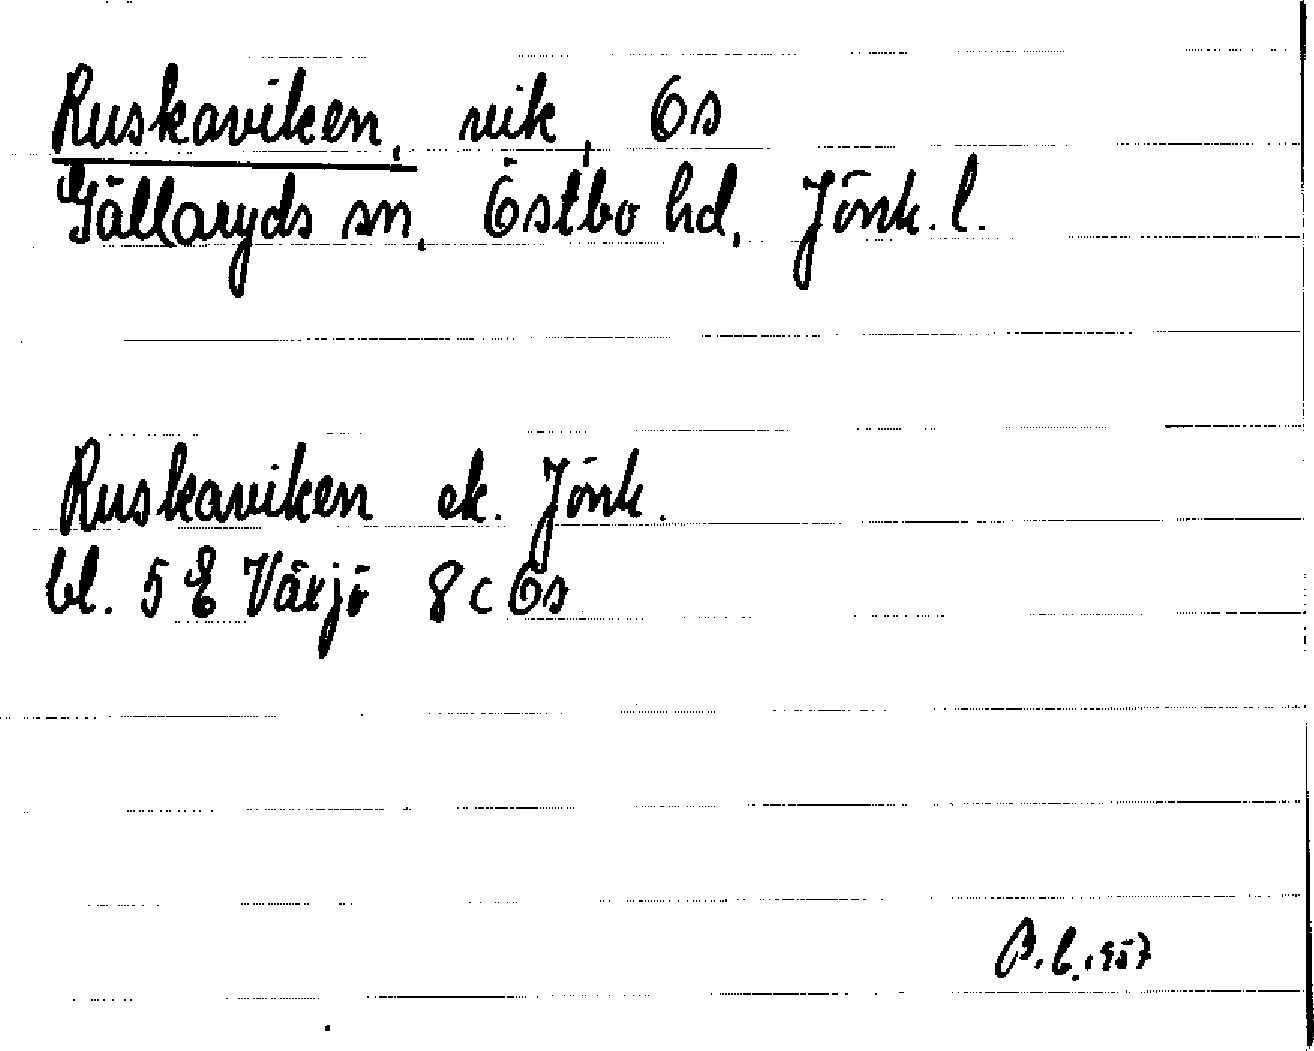 Ruskaviken, vik, Ös
Gällaryds sn, Östbo hd, Jönk. l.
Ruskaviken ek. Jönk.
bl. 5 E Växjö 8 c Ös
P.b. 1957